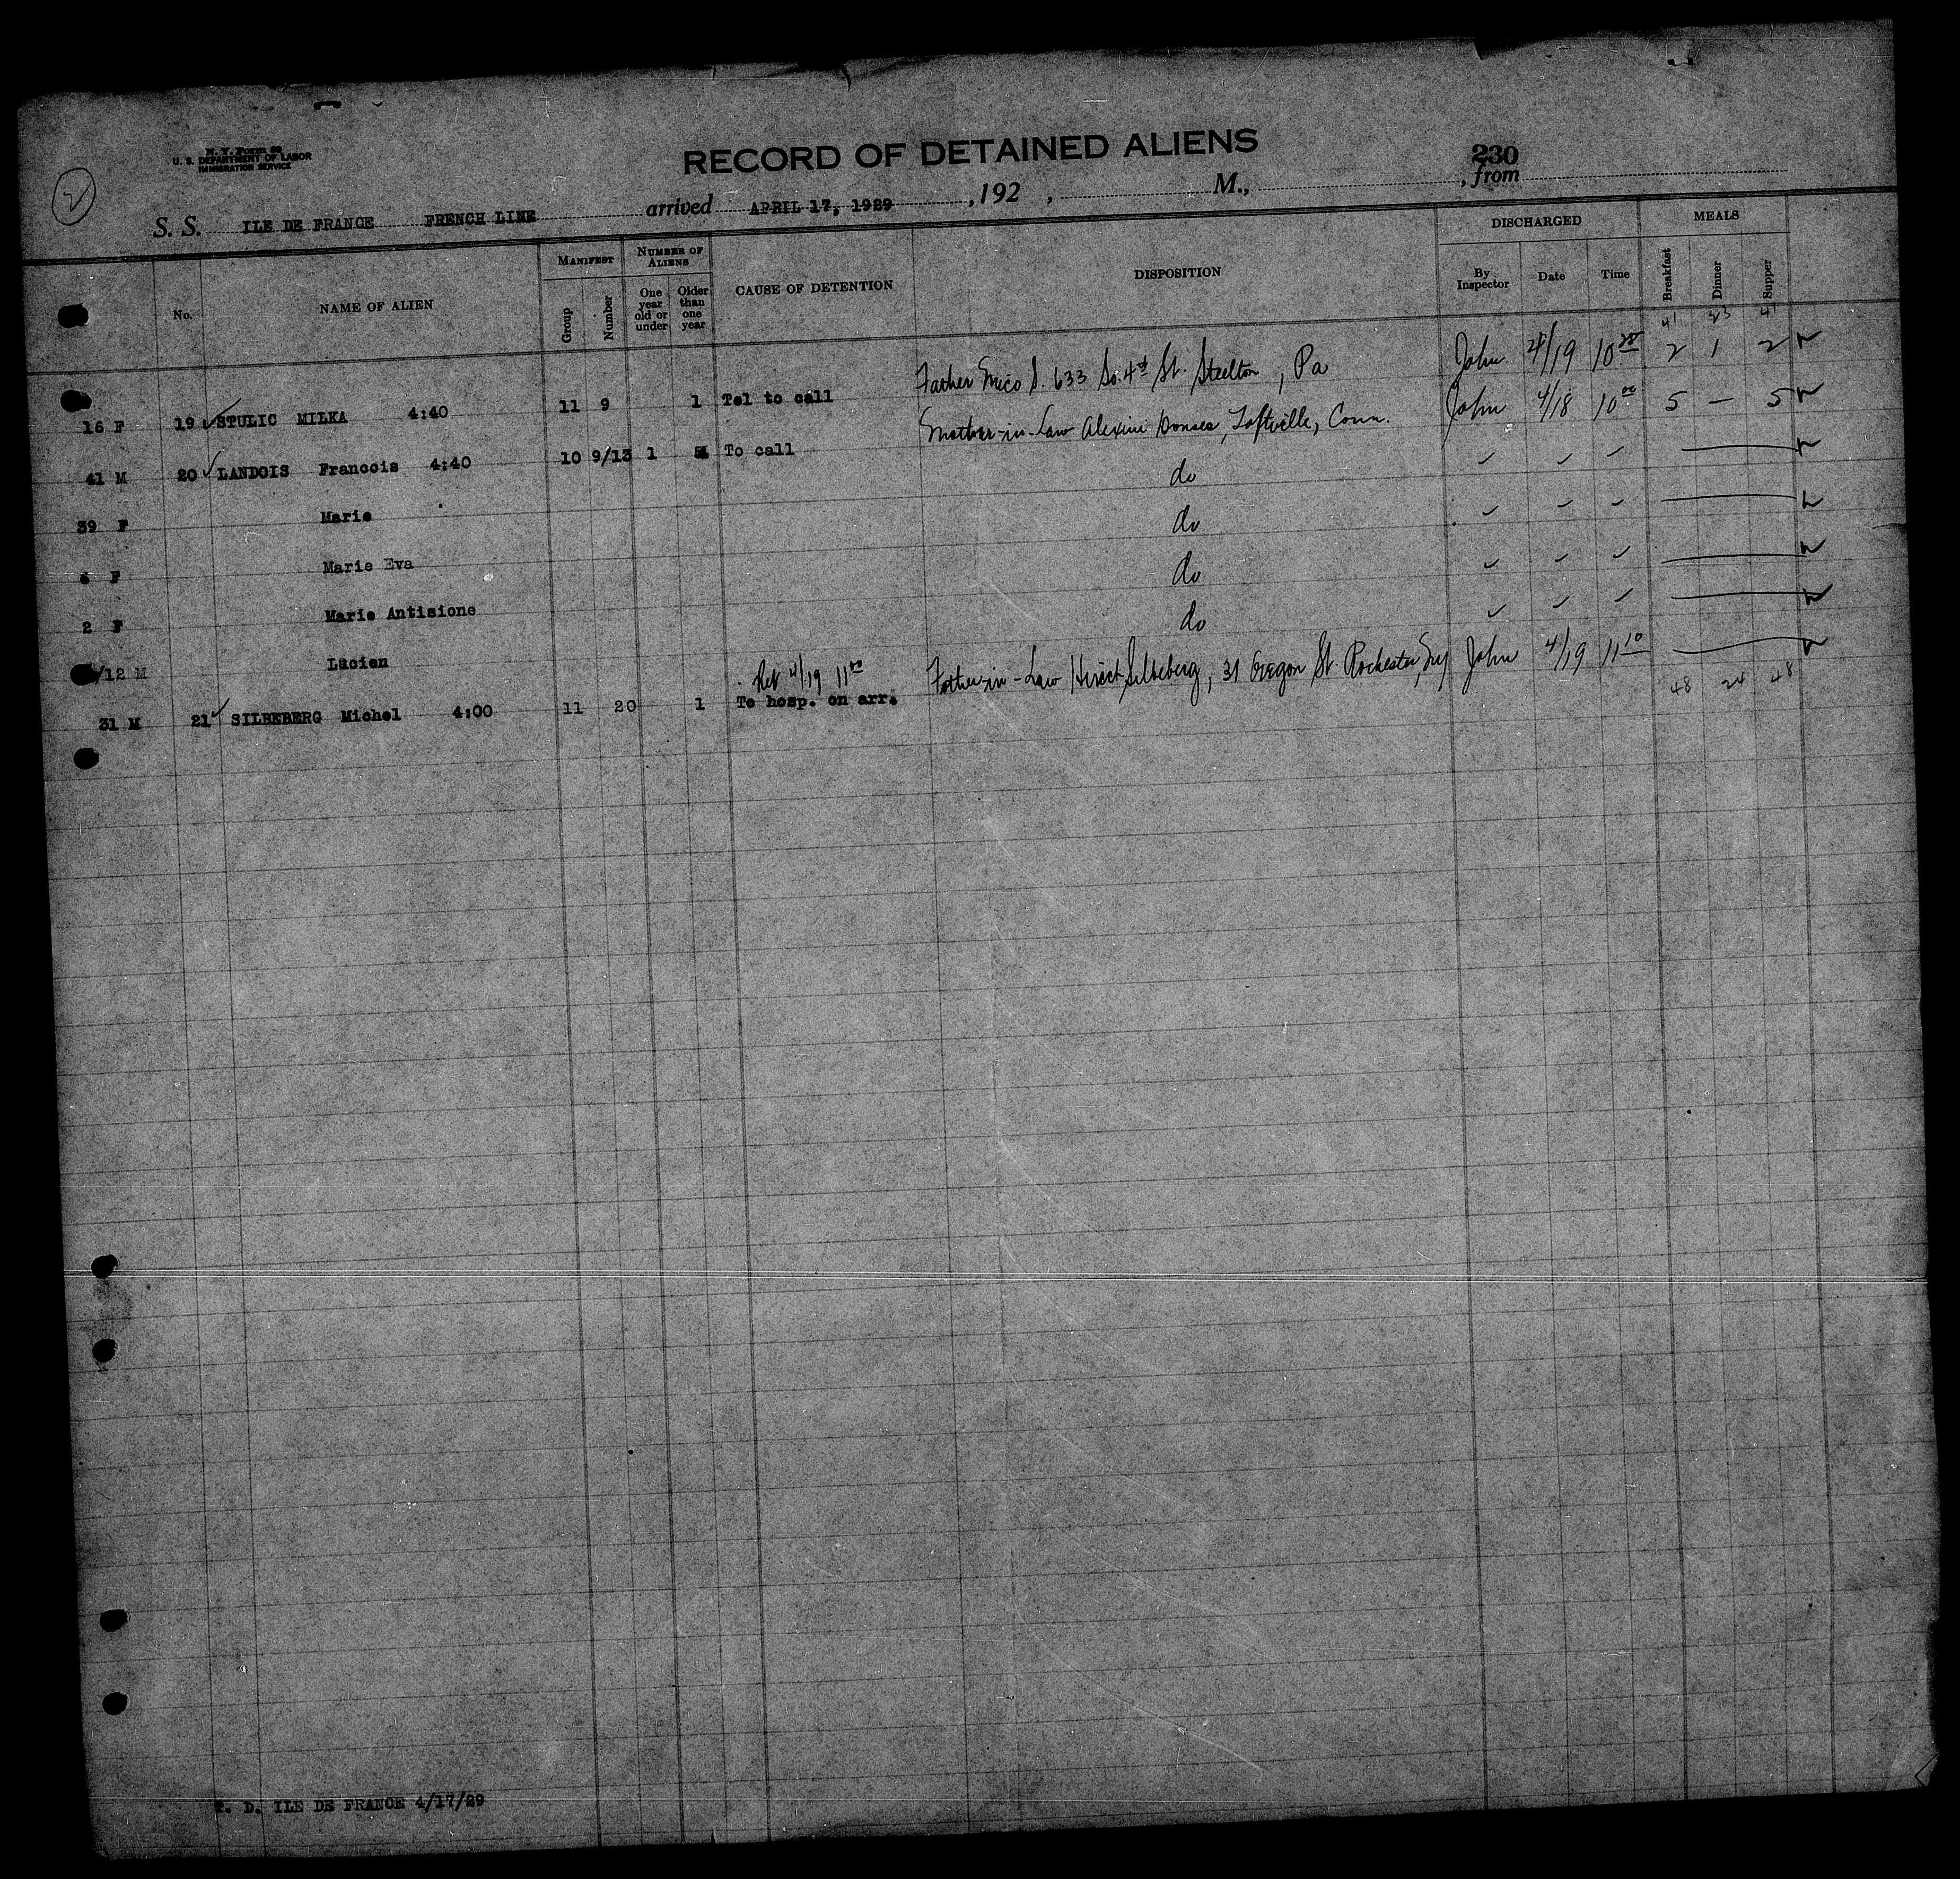 N. Y. Form
U. S. DEPARTMENT OF LABOR
IMMIGRATION SERVICE
2
RECORD OF DETAINED ALIENS
230
S. S. ILE DE FRANCE FRENCH LINE arrived APRIL 17, 1929 , 192 , M., , from
No. NAME OF ALIEN MANIFEST NUMBER OF ALIENS CAUSE OF DETENTION DISPOSITION DISCHARGED MEALS
Group Number One year old or under Older than one year By Inspector Date Time Breakfast Dinner Supper
41 23 41
16 F 19 ✓ STULIC MILKA 4:40 11 9 1 Tel to call Father S. 633 So. 4th St. Steelton, Pa John 4/19 10 2 1 2
41 M 20 ✓ LANDOIS Francois 4:40 10 9/13 1 To call Mother-in-Law Taftville, Conn. John 4/18 10 00 5 — 5
39 F Marie do ✓ ✓ ✓
F Marie Eva do ✓ ✓ ✓
2 F Marie Antisione do ✓ ✓ ✓
/12 M Lucien do ✓ ✓ ✓
4/19 11 00
31 M 21 ✓ SILBEBERG Michel 4:00 11 20 1 To hosp. on arr. Father-in-Law Silbeberg, 31 Oregon St Rochester, NY John 4/19 11 10
48 24 48
D. ILE DE FRANCE 4/17/29